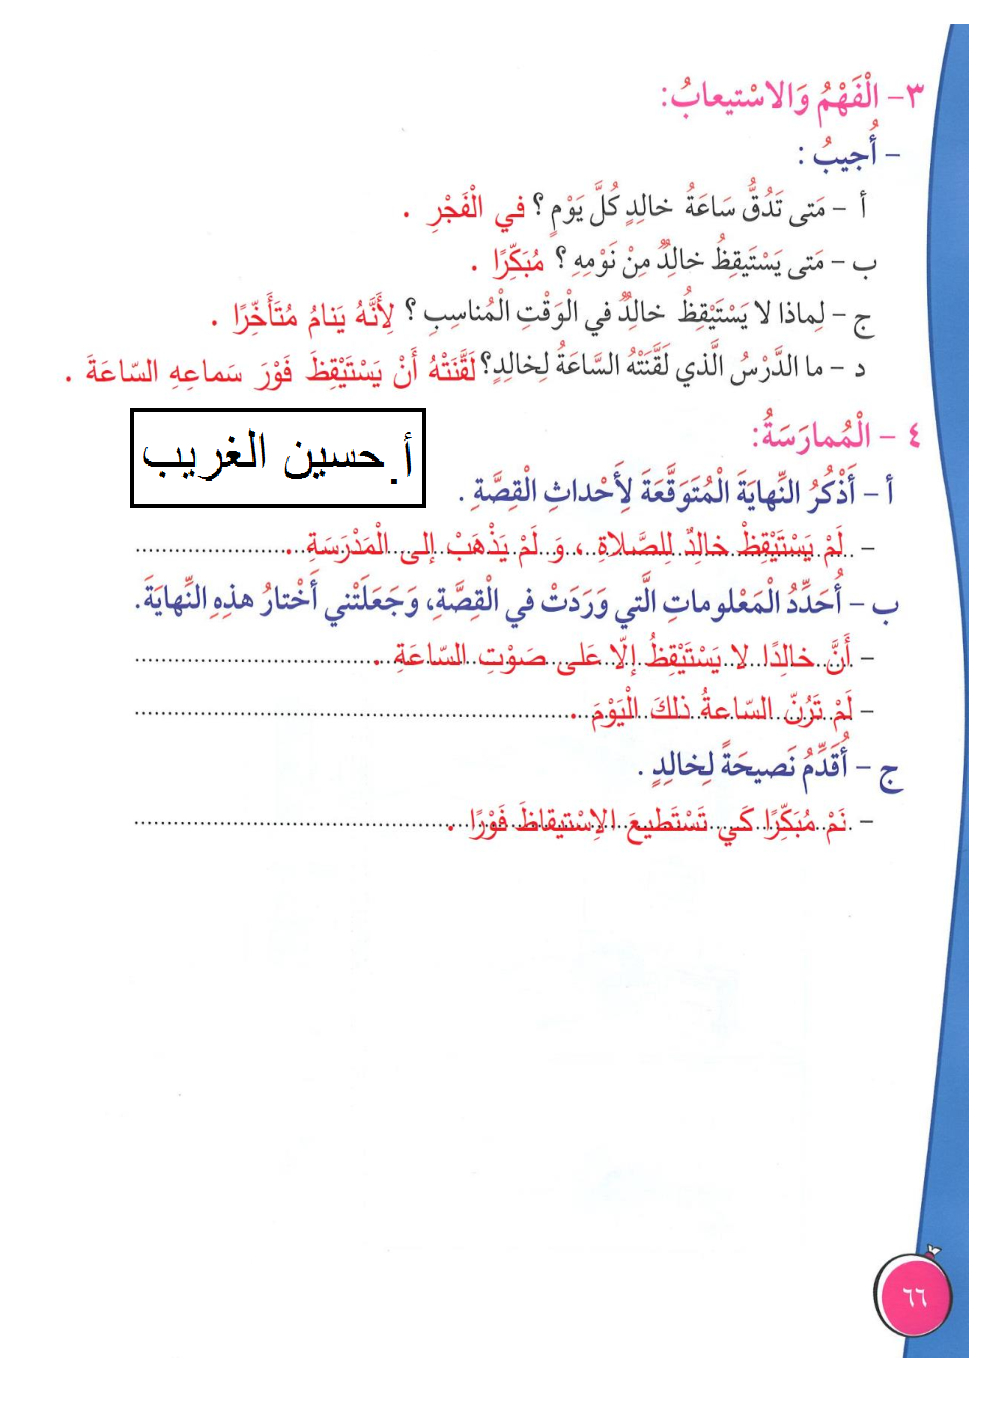 ٣- الْفَهْمُ وَالاسْتيعابُ:
- أُجيبُ :
أ - مَتى تَدُقُّ سَاعَةُ خالِدٍ كُلَّ يَوْمٍ ؟ في الْفَجْرِ .
ب - مَتى يَسْتَيقِظُ خالِدٌ مِنْ نَوْمِهِ ؟ مُبَكِّرًا .
ج - لِماذا لا يَسْتَيْقِظُ خالِدٌ في الْوَقْتِ الْمُناسِبِ ؟ لِأَنَّهُ يَنامُ مُتَأَخِّرًا .
د - ما الدَّرْسُ الَّذي لَقَّنَتْهُ السَّاعَةُ لِخالِدٍ؟ لَقَّنَتْهُ أَنْ يَسْتَيْقِظَ فَوْرَ سَماعِهِ السّاعَةَ .
٤ - الْمُمارَسَةُ:
أ. حسين الغريب
أ - أَذْكُرُ النِّهايَةَ الْمُتَوَقَّعَةَ لِأَحْداثِ الْقِصَّةِ .
- لَمْ يَسْتَيْقِظْ خالِدٌ لِلصَّلاةِ ، وَ لَمْ يَذْهَبْ إلى الْمَدْرَسَةِ .
ب - أُحَدِّدُ الْمَعْلوماتِ الَّتي وَرَدَتْ في الْقِصَّةِ، وَجَعَلَتْني أَخْتارُ هذِهِ النِّهايَةَ.
- أَنَّ خالِدًا لا يَسْتَيْقِظُ إلّا عَلى صَوْتِ السّاعَةِ .
- لَمْ تَرُنّ السّاعةُ ذلكَ الْيَوْمَ .
ج - أُقَدِّمُ نَصيحَةً لِخالِدٍ .
- نَمْ مُبَكِّرًا كَي تَسْتَطيعَ الاِسْتيقاظَ فَوْرًا .
٦٦